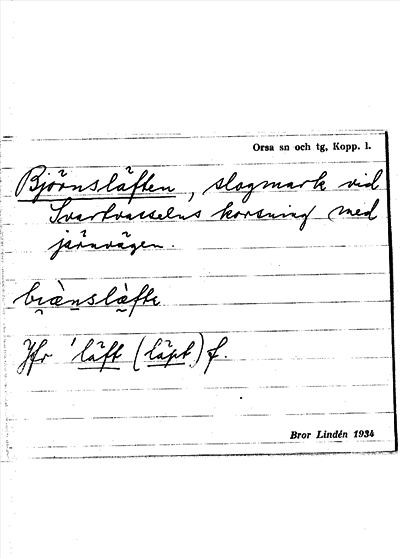 Orsa sn och tg, Kopp. l.
Björnsläften, slogmark vid
Svartvasselns korsning med
järnvägen.
bi̯ä̀nslä̀fte
Jfr 'läft (läpt) f.
Bror Lindén 1934